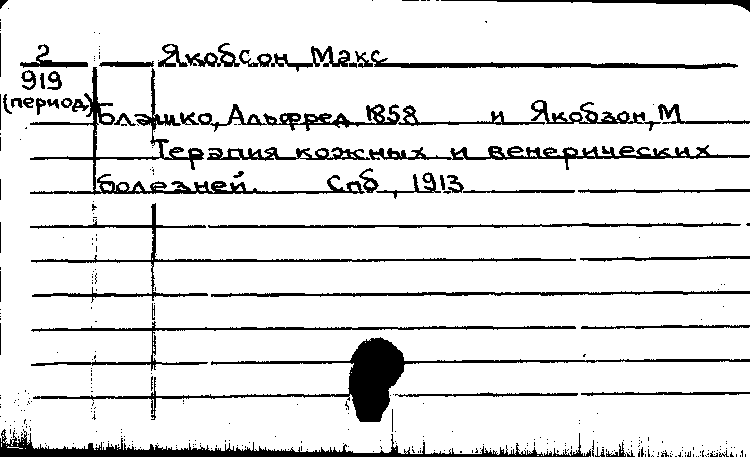 2 Якобсон, Макс
919
(период)
Блашко, Альфред 1858 и Якобзон, М
Терапия кожных и венерических
болезней. Спб, 1913